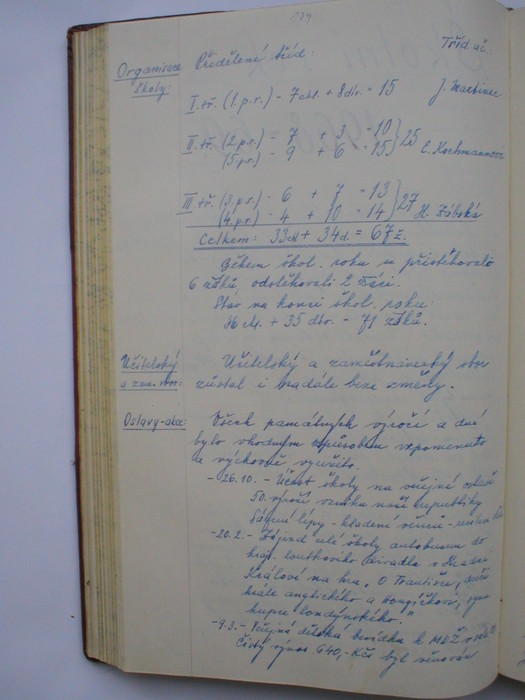 179
Tříd. uč.:
Organisace školy:
Přidělení tříd:
I. tř. (1. p. r.) - 7 chl. + 8 dív. - 15 J. Martinec
II. tř. (2. p. r.) - 7 + 3 - 10 } 25
(5. p. r.) - 9 + 6 - 15 E. Kochmannová
III. tř. (3. p. r.) - 6 + 7 - 13 } 27
(4. p. r.) - 4 + 10 - 14 H. Zábská
Celkem: 33 ch + 34 d. = 67 ž.
Během škol. roku se přistěhovalo
6 žáků, odstěhovali 2 žáci.
Stav na konci škol. roku:
36 chl. + 35 dív. - 71 žáků.
Učitelský a zam. sbor:
Učitelský a zaměstnanecký sbor
zůstal i nadále beze změny.
Oslavy - akce:
Všech památných výročí a dnů
bylo vhodným způsobem vzpomenuto
a výchovně využito.
- 26.10. - Účast školy na veřejné oslavě
50. výročí vzniku naší republiky
Sázení lípy - kladení věnců -
- 20.2. - Zájezd celé školy autobusem do
kraj. loutkového divadla v Hradci
Králové na hru "O Františce, dceři
krále anglického a Honzíčkovi, synu
kupce londýnského."
- 9.3. - Veřejná dětská besídka k MDŽ
Čistý výnos 640,- Kčs byl věnován